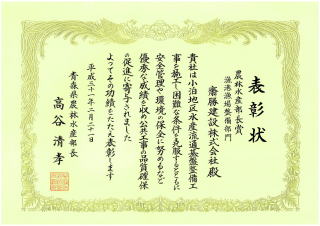 表彰状
農林水産部長賞
漁港漁場整備部門
齋勝建設株式会社殿
貴社は小泊地区水産流通基盤整備工
事を施工し困難な条件を克服するとともに
安全管理や環境の保全に努めるなど
優秀な成績を収め公共工事の品質確保
の促進に寄与されました
よってその功績をたたえ表彰します
平成三十一年二月二十一日
青森県農林水産部長
高谷清孝